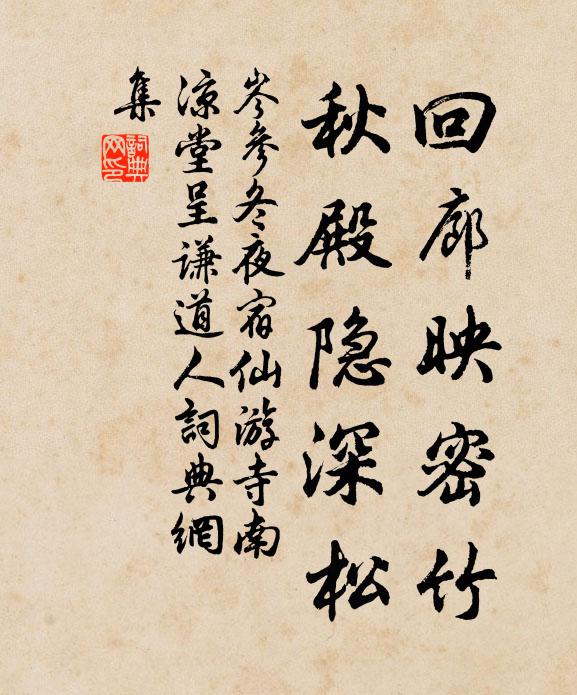 回廊映密竹
秋殿隐深松
岑参冬夜宿仙游寺南
凉堂呈谦道人詞典網
集
詞典网印